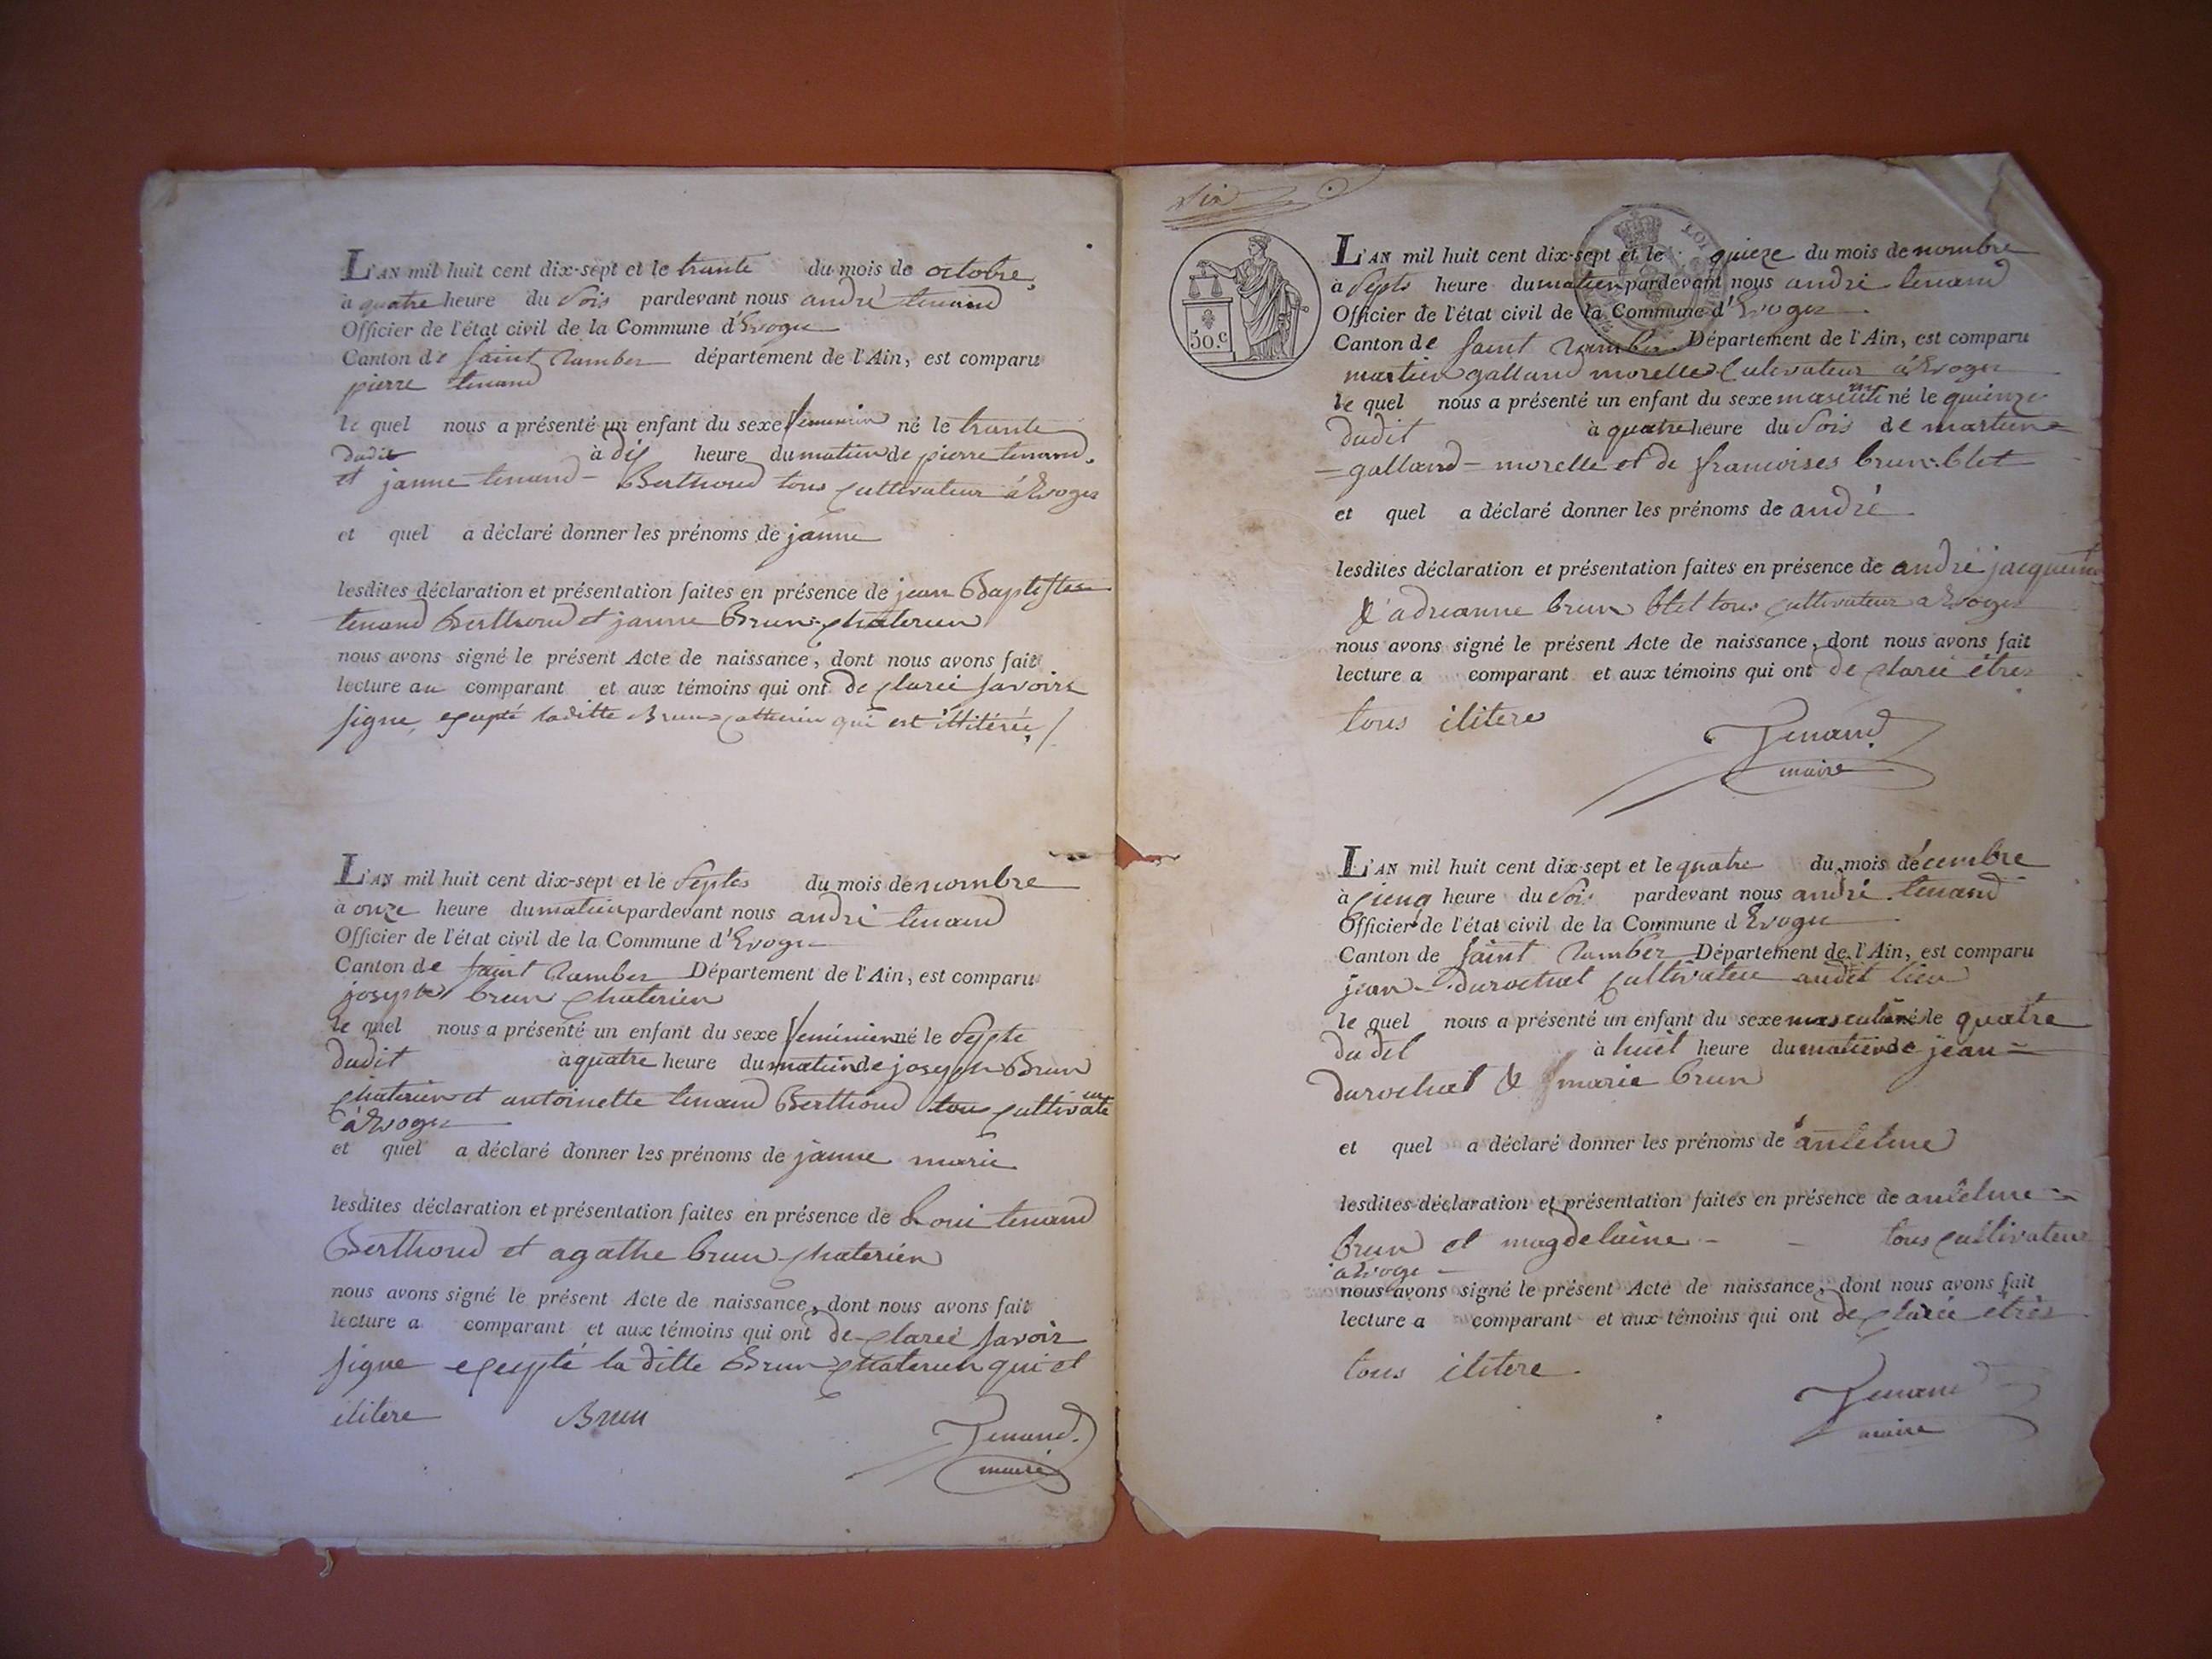 L'AN mil huit cent dix-sept et le trante du mois de octobre
à quatre heure du Sois pardevant nous andré tenand
Officier de l'état civil de la Commune d'Evoges
Canton de Saint Ramber département de l'Ain, est comparu
pierre tenand
le quel nous a présenté un enfant du sexe femminin né le trante
dudit à dix heure du matien de pierre tenand
et janne tenand - Berthoud tous cultivateur à Evoges
et quel a déclaré donner les prénoms de janne
lesdites déclaration et présentation faites en présence de jean Baptiste
tenand Berthoud et janne Brun = chaterien
nous avons signé le présent Acte de naissance, dont nous avons fait
lecture au comparant et aux témoins qui ont de clareé savoire
signe, excepté laditte Brun qui est illitérée
L'AN mil huit cent dix-sept et le Septes du mois de nombre
à onze heure du matien pardevant nous andré tenand
Officier de l'état civil de la Commune d'Evoges
Canton de Saint Ramber Département de l'Ain, est comparu
josephe brun chaterien
le quel nous a présenté un enfant du sexe feminien né le Septe
dudit à quatre heure du matien de joseph Brun
chaterien et antoinette tenand Berthoud tous cultivateur
à Evoges
et quel a déclaré donner les prénoms de janne marie
lesdites déclaration et présentation faites en présence de Loui tenand
Berthoud et agathe brun chaterien
nous avons signé le présent Acte de naissance, dont nous avons fait
lecture a comparant et aux témoins qui ont de clareé savoir
signe excepté la ditte Brun chaterien qui et
ilitere Brun Tenand
maire
six
50.c
LOI
L'AN mil huit cent dix-sept et le quieze du mois de nombre
à Septs heure du matien pardevant nous andré tenand
Officier de l'état civil de la Commune d'Evoges
Canton de Saint Ramber Département de l'Ain, est comparu
martien galland morelle Cultivateur à Evoges
le quel nous a présenté un enfant du sexe né le quienze
dudit à quatre heure du Sois de martien =
= galland = morelle et de francoises brun blet
et quel a déclaré donner les prénoms de andré
lesdites déclaration et présentation faites en présence de andré
& adreanne brun blet tous cultivateur a Evoges
nous avons signé le présent Acte de naissance, dont nous avons fait
lecture a comparant et aux témoins qui ont de clareé etres
tous ilitere
Tenand
maire
L'AN mil huit cent dix-sept et le quatre du mois décembre
à cienq heure du Soi pardevant nous andré tenand
Officier de l'état civil de la Commune d Evoges
Canton de Saint Ramber Département de l'Ain, est comparu
jean - durochat cultivateu audit lieu
le quel nous a présenté un enfant du sexe né le quatre
du dit à huit heure du matien de jean =
durochat & marie brun
et quel a déclaré donner les prénoms de anteleme
lesdites déclaration et présentation faites en présence de antelme =
brun et magdelaine - - tous cultivateur
a Evoge
nous avons signé le présent Acte de naissance, dont nous avons fait
lecture a comparant et aux témoins qui ont de clareé etrès
tous ilitere
Tenand
maire